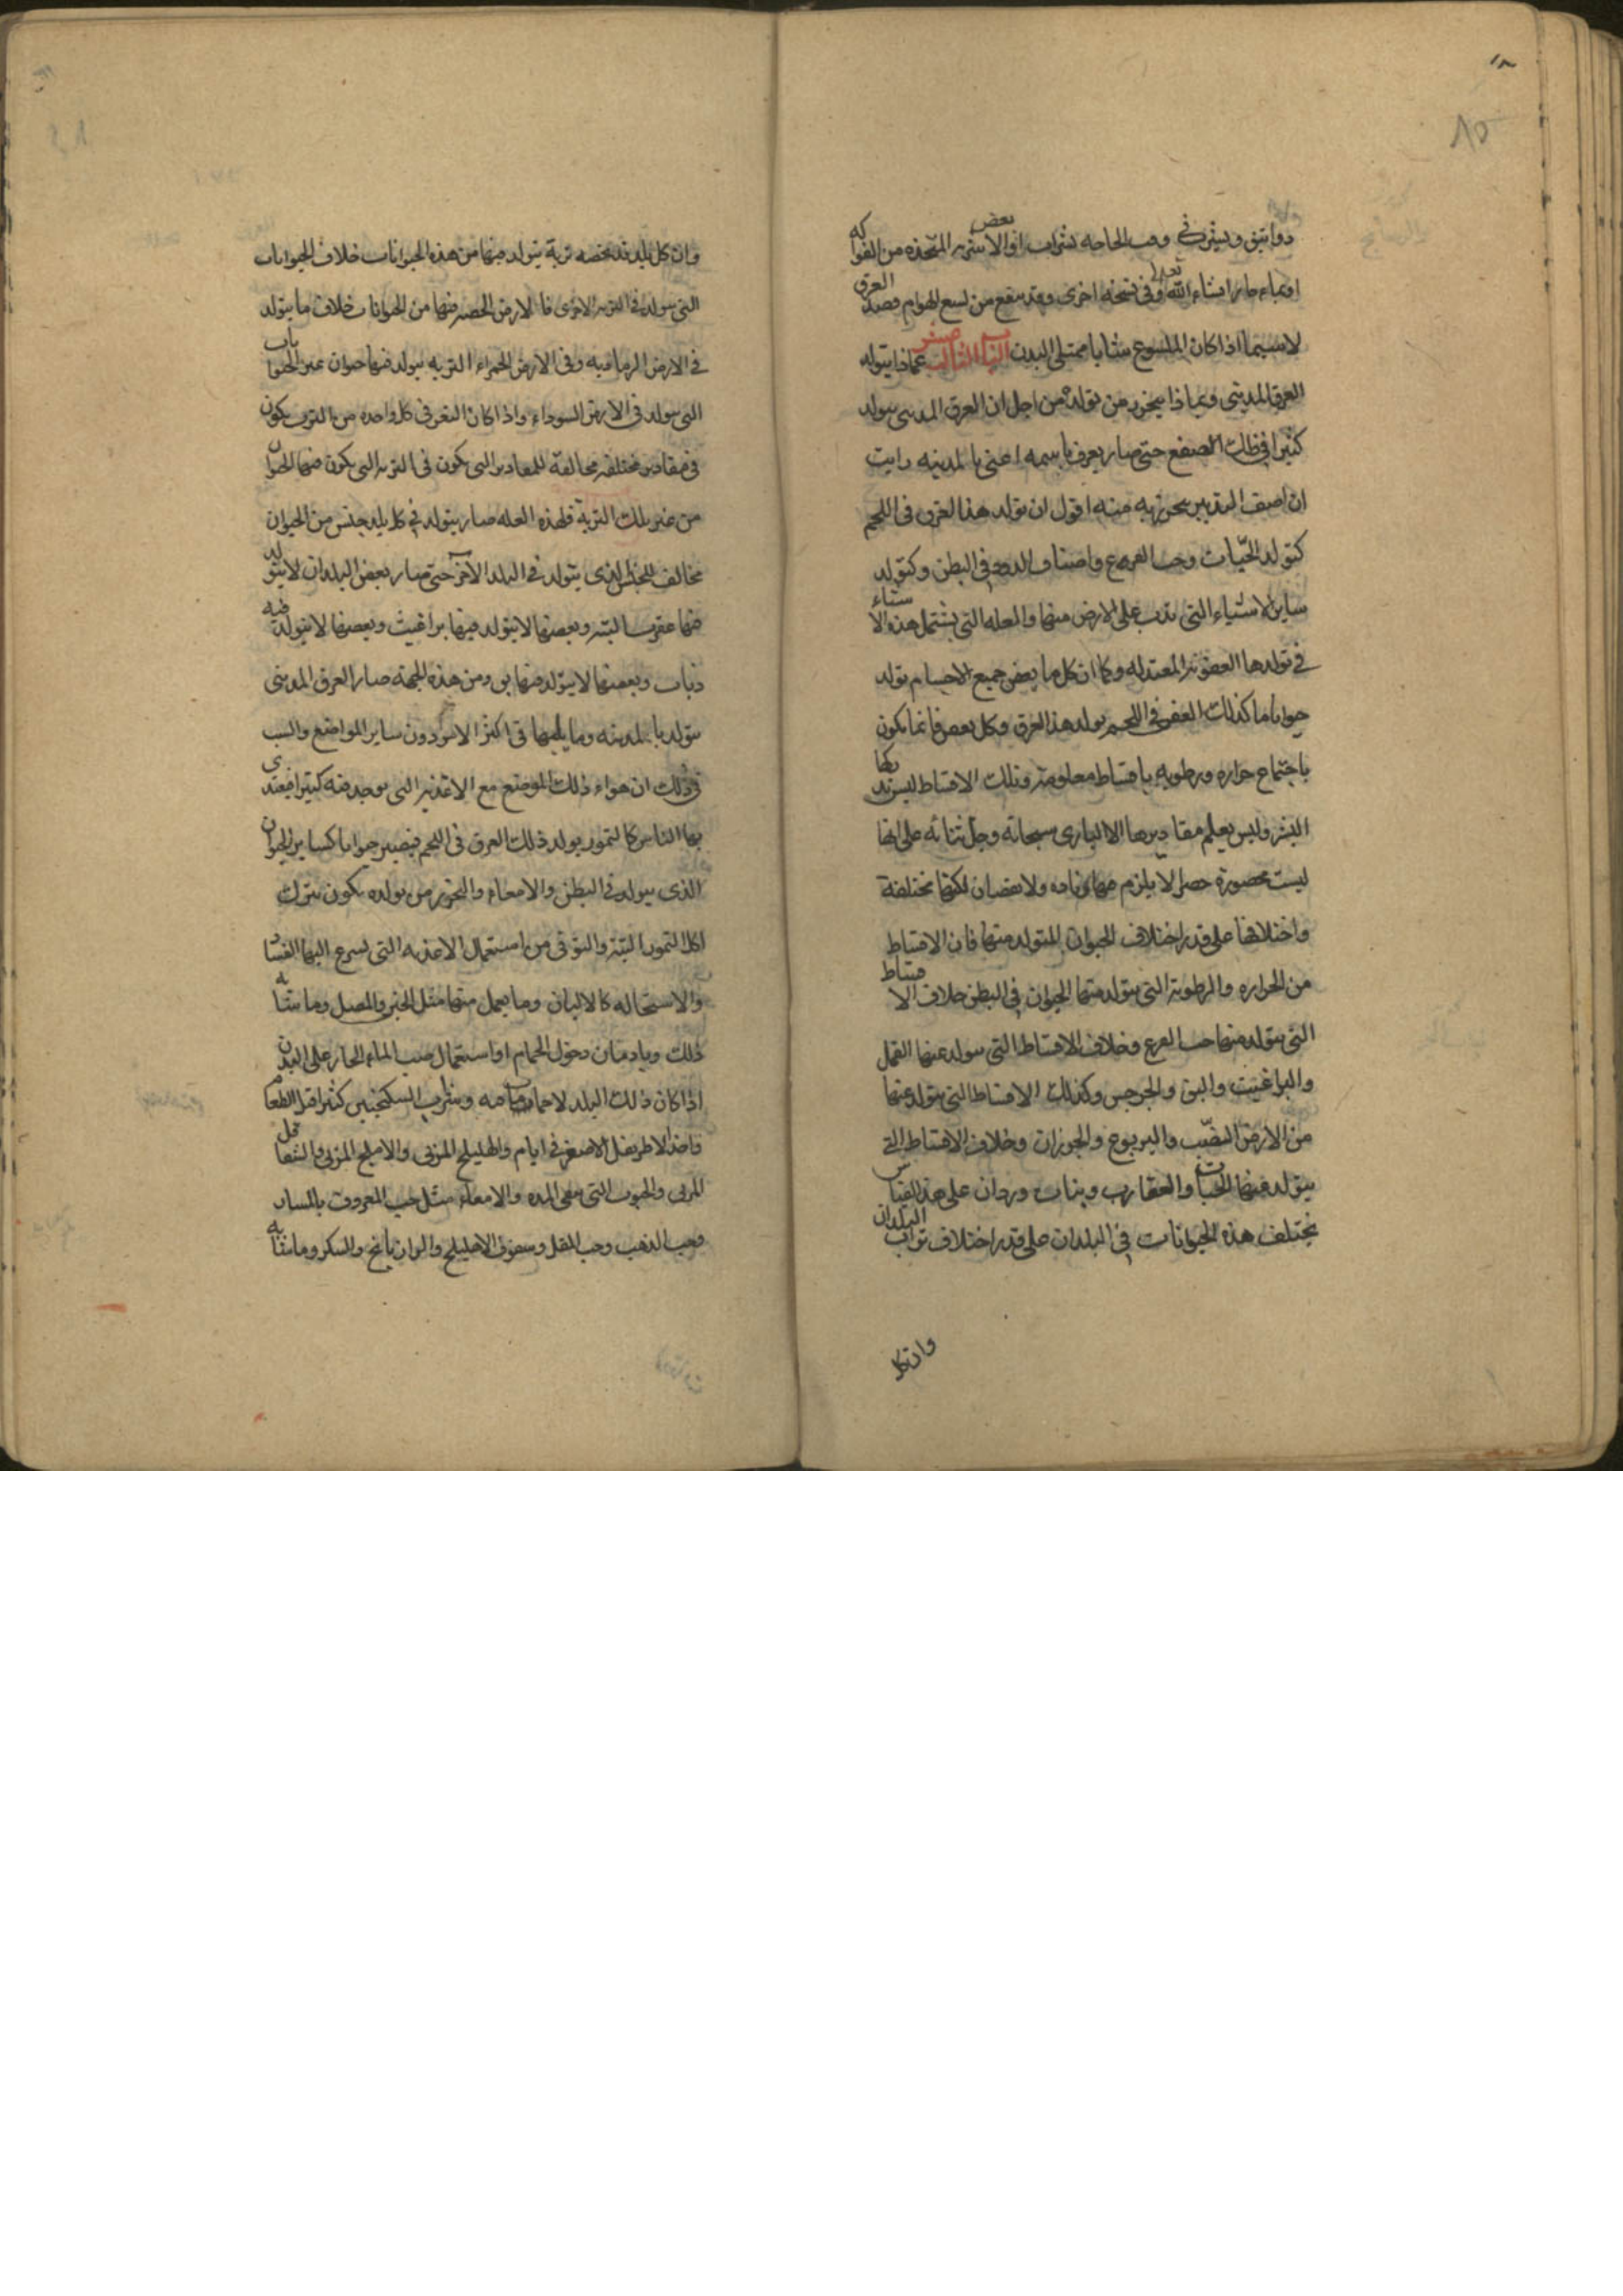 ١٨
٨٥
دوانيق ويشرب وقت الحاجه بشراب او بعض الاشربه المتخذه من الفواكه
او بماء حار انشاء الله تعالى وفى نسخه اخرى وقد ينفع من لسع الهوام فصد العرق
لاسيما اذا كان الملسوع شابا ممتلى البدن الباب الثالث عشر عماذا يتولد
العرق المدينى وبماذا يتحرز من تولده من اجل ان العرق المدينى يتولد
كثيرا فى ذلك الصقع حتى صار يعرف باسمه اعنى بالمدينه رايت
ان اصف التدبير يحترز به منه اقول ان تولد هذا العرق فى اللحم
كتولد الحيات وحب القرع واصناف الدود فى البطن وكتولد
ساير الاشياء التى تدب على الارض منها والعله التى يشتمل هذه الاشياء
فى تولدها العفونه المعتدله وكما ان كل ما يعفن جميع الاجسام يتولد
حيوانا ما كذلك العفن فى اللحم يولد هذا العرق وكل يعفن فانما يكون
باجتماع حراره ورطوبه باقساط معلومه وتلك الاقساط ليس يدركها
البشر وليس يعلم مقاديرها الا البارى سبحانه وجل ثنائه على انها
ليست محصورة حصرا لا يلزم منها زياده ولا نقصان لكنها مختلفة
واختلافها على قدر اختلاف الحيوان المتولد منها فان الاقساط
من الحراره والرطوبه التى يتولد منها الحيوان فى البطن خلاف الاقساط
التى يتولد منها حب القرع وخلاف الاقساط التى يتولد عنها القمل
والبراغيث والبق والجرجس وكذلك الاقساط التى يتولد عنها
من الارض الضب واليربوع والجرذان وخلاف الاقساط التى
يتولد منها الحيات والعقارب وبنات وردان على هذا القياس
تختلف هذه الحيوانات فى البلدان على قدر اختلاف تراب البلدان
وان كل
وان كل بلد قد تخصه تربة يتولد فيها من هذه الحيوانات خلاف الحيوانات
التى يتولد فى التربه الاخرى فالارض الخصبه فيها من الحيوانات خلاف ما يتولد
فى الارض الرماديه وفى الارض الحمراء التربه يتولد فيها حيوان غير الحيوانات
التى يتولد فى الارض السوداء واذا كان التعفن فى كل واحده من الترب يكون
فى مقادير مختلفه مخالفة للمقادير التى يكون فى التربه التى يكون فيها الحيوان
من غير تلك التربة فلهذه العله صار يتولد فى كل بلد جنس من الحيوان
مخالف للجنس الذى يتولد فى البلد الآخر حتى صار بعض البلدان لا يتولد
فيها عقرب البته وبعضها لا يتولد فيها براغيث وبعضها لا يتولد فيه
ذباب وبعضها لا يتولد فيها بق ومن هذه الجهة صار العرق المدينى
يتولد بالمدينه وما يليها فى اكثر الامر دون ساير المواضع والسبب
فى ذلك ان هواء ذلك الموضع مع الاغذيه التى يوجد فيه كثيرا فيغتذى
بها الناس كالتمور يولد ذلك العرق فى اللحم فيصير حيوانا كساير الحيوان
الذى يتولد فى البطن والامعاء والتحرز من تولده يكون بترك
اكل التمور البتة والتوقى من استعمال الاغذيه التى يسرع اليها الفساد
والاستحاله كالالبان وما يعمل منها مثل الجبن والمصل وما شابه
ذلك وبادمان دخول الحمام او استعمال صب الماء الحار على البدن
اذا كان ذلك البلد لا حمامات فيه وبشرب السكنجبين كثيرا قبل الطعام
واخذ الاطريفل الاصغر فى ايام والهليلج المربى والاملج المربى والشقاقل
المربى والحبوب التى تنقى المعده والامعاء مثل حب المعروف بالمساد
وحب الذهب وحب المقل وسفوف الاهليلج والرازيانج والسكر وما شابه